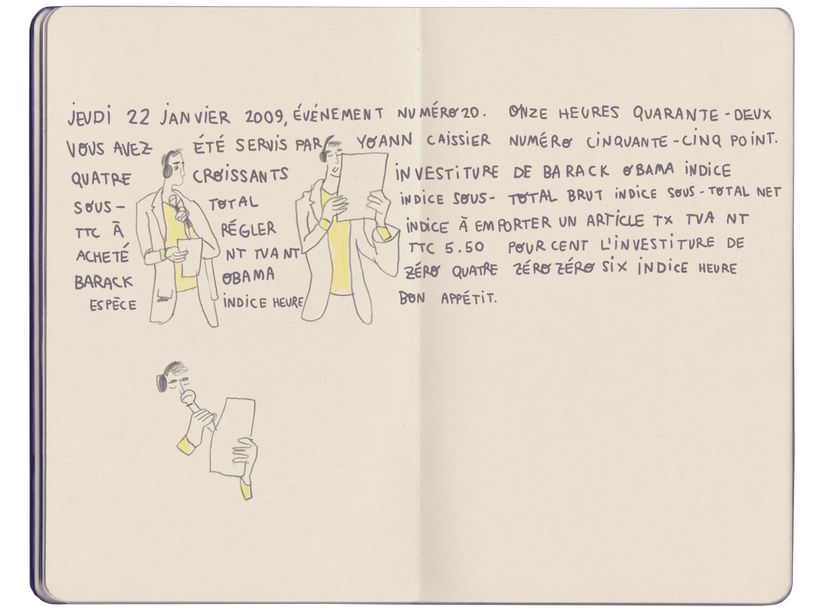 JEUDI 22 JANVIER 2009, ÉVÉNEMENT NUMÉRO 20. ONZE HEURES QUARANTE-DEUX
VOUS AVEZ ÉTÉ SERVIS PAR YOANN CAISSIER NUMÉRO CINQUANTE-CINQ POINT.
QUATRE CROISSANTS INVESTITURE DE BARACK OBAMA INDICE
SOUS- TOTAL INDICE SOUS- TOTAL BRUT INDICE SOUS-TOTAL NET
TTC À RÉGLER INDICE À EMPORTER UN ARTICLE TX TVA NT
ACHETÉ NT TVA NT TTC 5.50 POUR CENT L'INVESTITURE DE
BARACK OBAMA ZÉRO QUATRE ZÉRO ZÉRO SIX INDICE HEURE
ESPÈCE INDICE HEURE BON APPÉTIT.